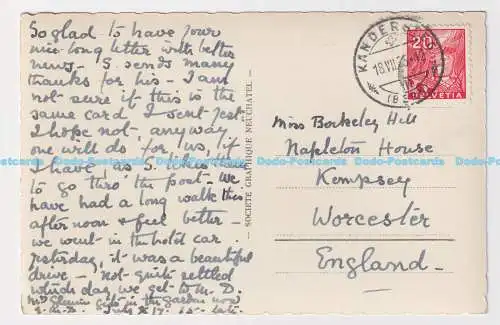 So glad to have your
nice long letter with better
news - S. sends many
thanks for his - I am
not sure if this is the
same card I sent yest:
I hope not - anyway
one will do for us, if
I have, as S. likes them
to go thro the post - We
have had a long walk this
afternoon & feel better -
we went in the hotel car
yesterday, it was a beautiful
drive - not quite settled
which day we get to M. D.
in the garden now
SOCIÉTÉ GRAPHIQUE NEUCHATEL
KANDERSTEG
18.VII.
20
HELVETIA
Miss Borkeley Hill
Napleton House
Kempsey
Worcester
England -
Dodo-Postcards Dodo-Postcards Dodo-Postcards